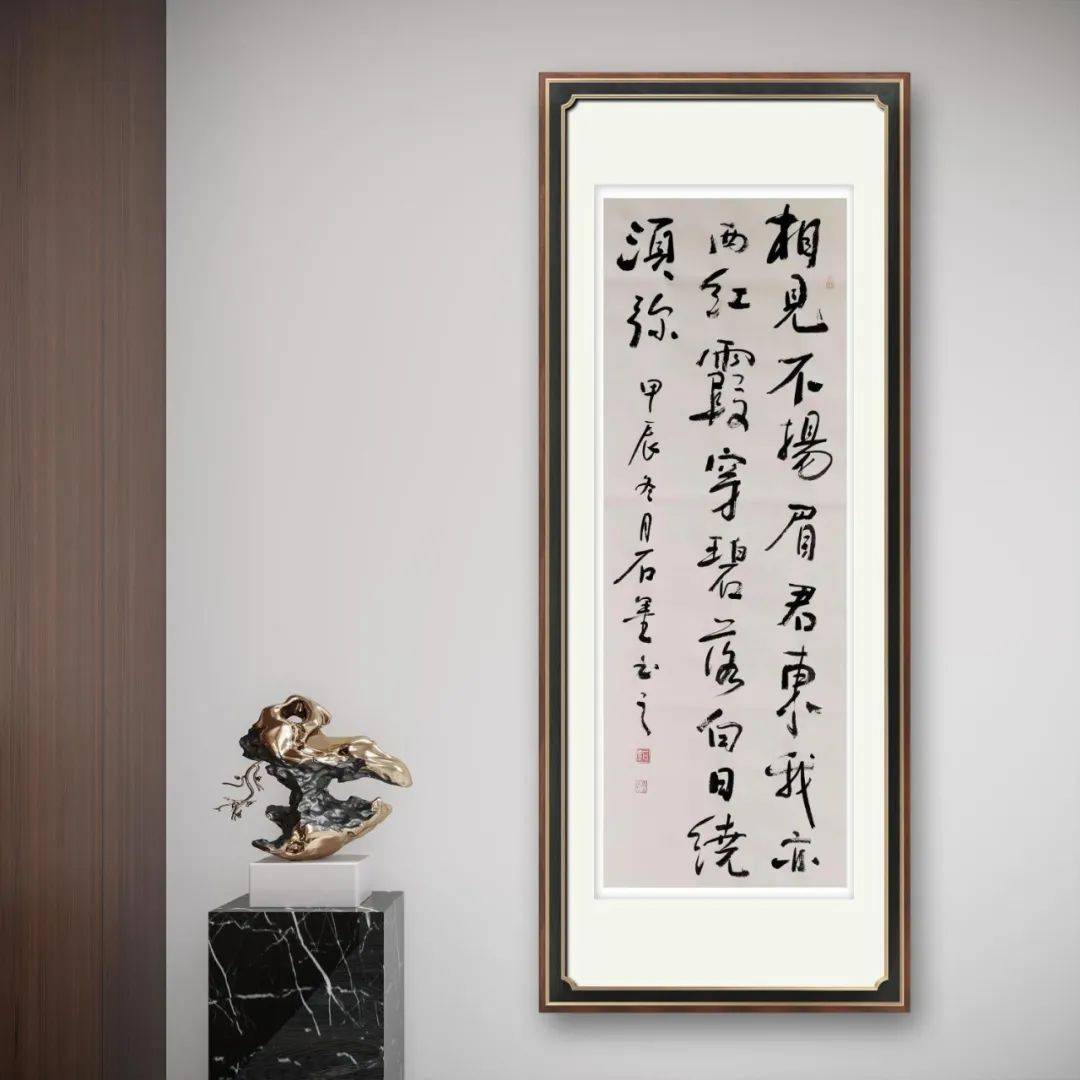 相見不揚眉君東我亦
西紅霞穿碧落白日繞
須弥甲辰冬月石墨书之